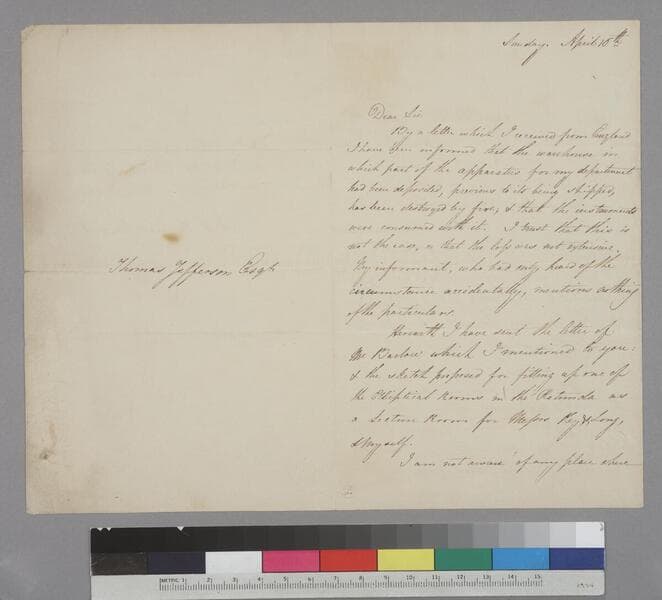 Thomas Jefferson Esqr
Sunday. April 10th
Dear Sir
By a letter which I received from England
I have been informed that the warehouse in
which part of the apparatus for my department
had been deposited, previous to its being shipped,
has been destroyed by fire, & that the instruments
were consumed with it. I trust that this is
not the case, or that the loss was not extensive.
My informant, who had only heard of the
circumstance accidentally, mentions nothing
of the particulars.
Herewith I have sent the letter of
Mr Barlow which I mentioned to you:
& the sketch proposed for fitting up one of
the Eliptical Rooms in the Rotunda as
a Lecture Room for Messrs Key & Long,
& myself.
I am not aware of any place where
METRIC 1 2 3 4 5 6 7 8 9 10 11 12 13 14 15